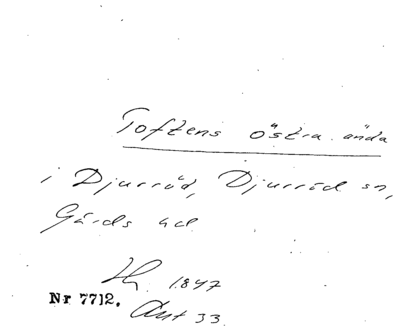 Toftens östra ända
i Djurröd, Djurröd sn,
Gärds hd
Lh. 1847
Nr 7712. Akt 33.